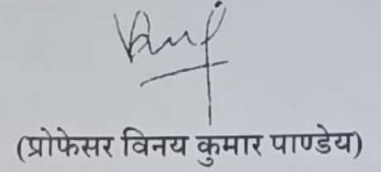 (प्रोफेसर विनय कुमार पाण्डेय)